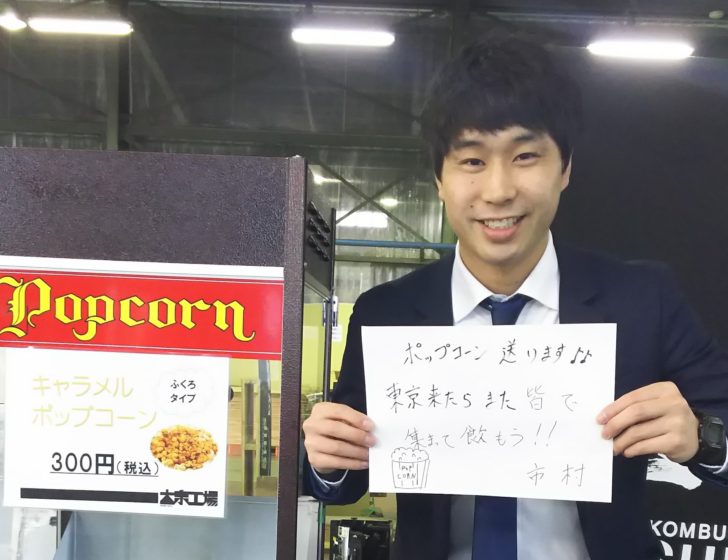 Popcorn
キャラメル
ポップコーン
ふくろ
タイプ
300円(税込)
ポップコーン 送ります♪♪
東京来たらまた皆で
集まって飲もう!!
POP
CORN
市村
KOMBU